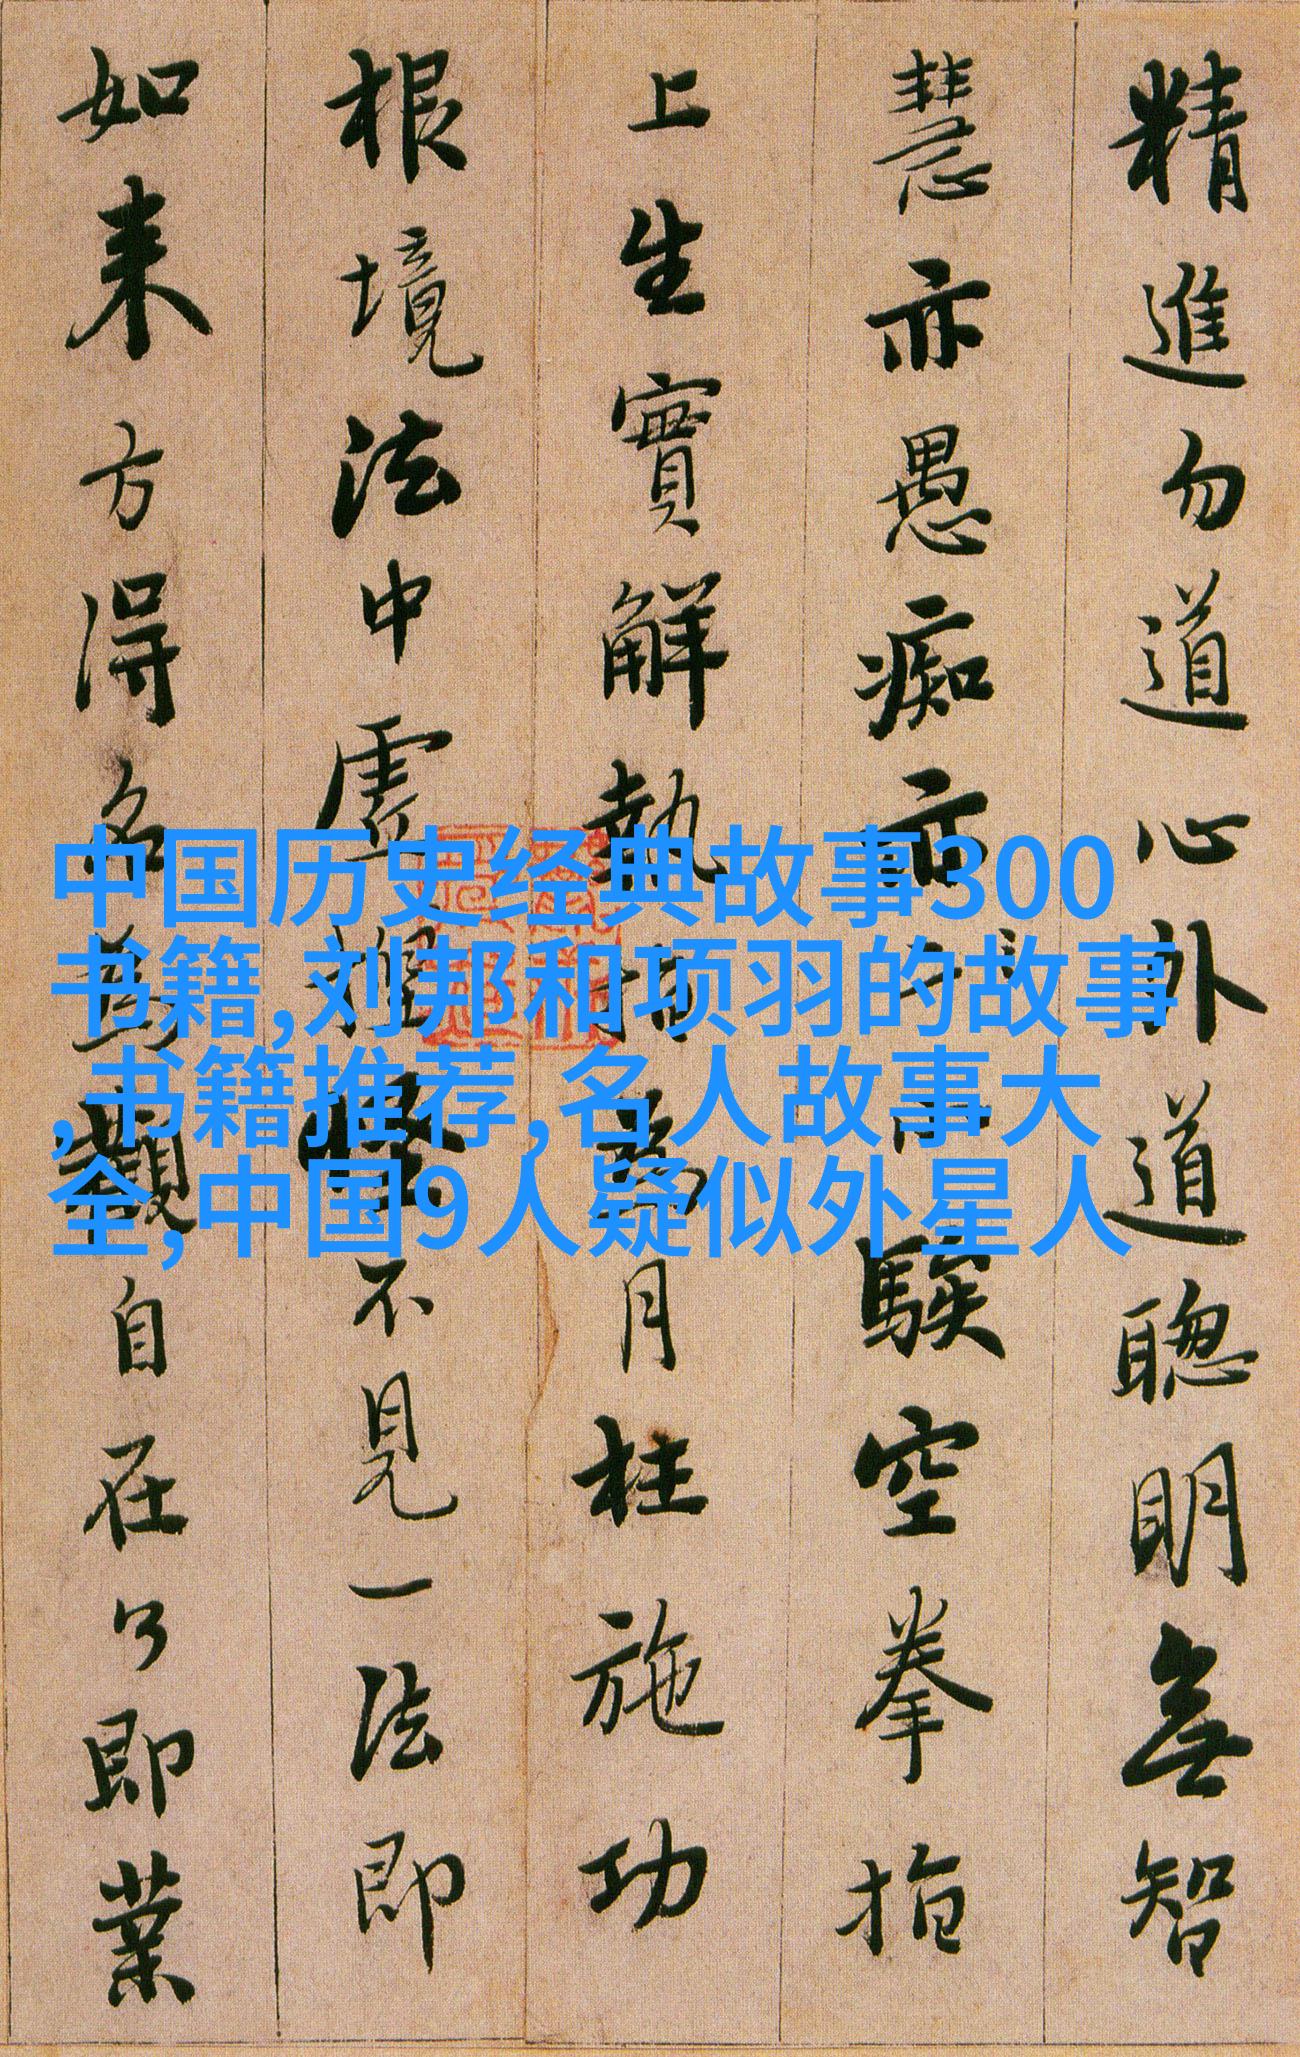 精進勿道心外道聰明無智
慧亦愚痴亦小騃空拳指
上生實解執指為月枉施功
根境法中虛捏怪不見一法即
如来方得名為觀自在了即業
中国历史经典故事300
书籍,刘邦和项羽的故事
,书籍推荐,名人故事大
全,中国9人疑似外星人